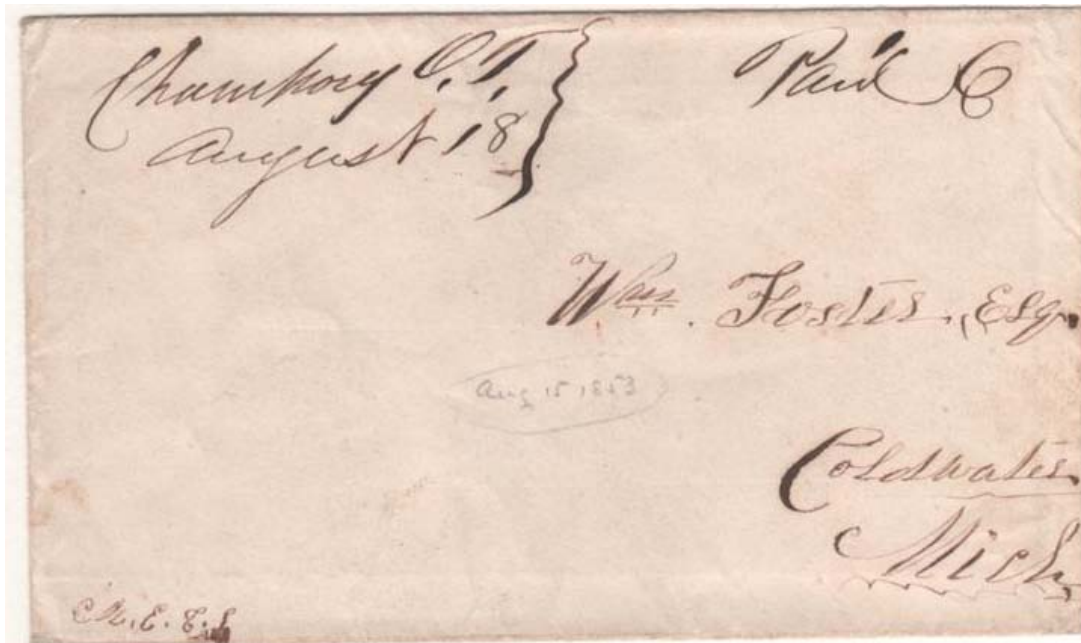 Champoeg O.T.
August 18
Paid 6
Wm. Foster, Esq.
Aug 15 1853
Coldwater
Mich.